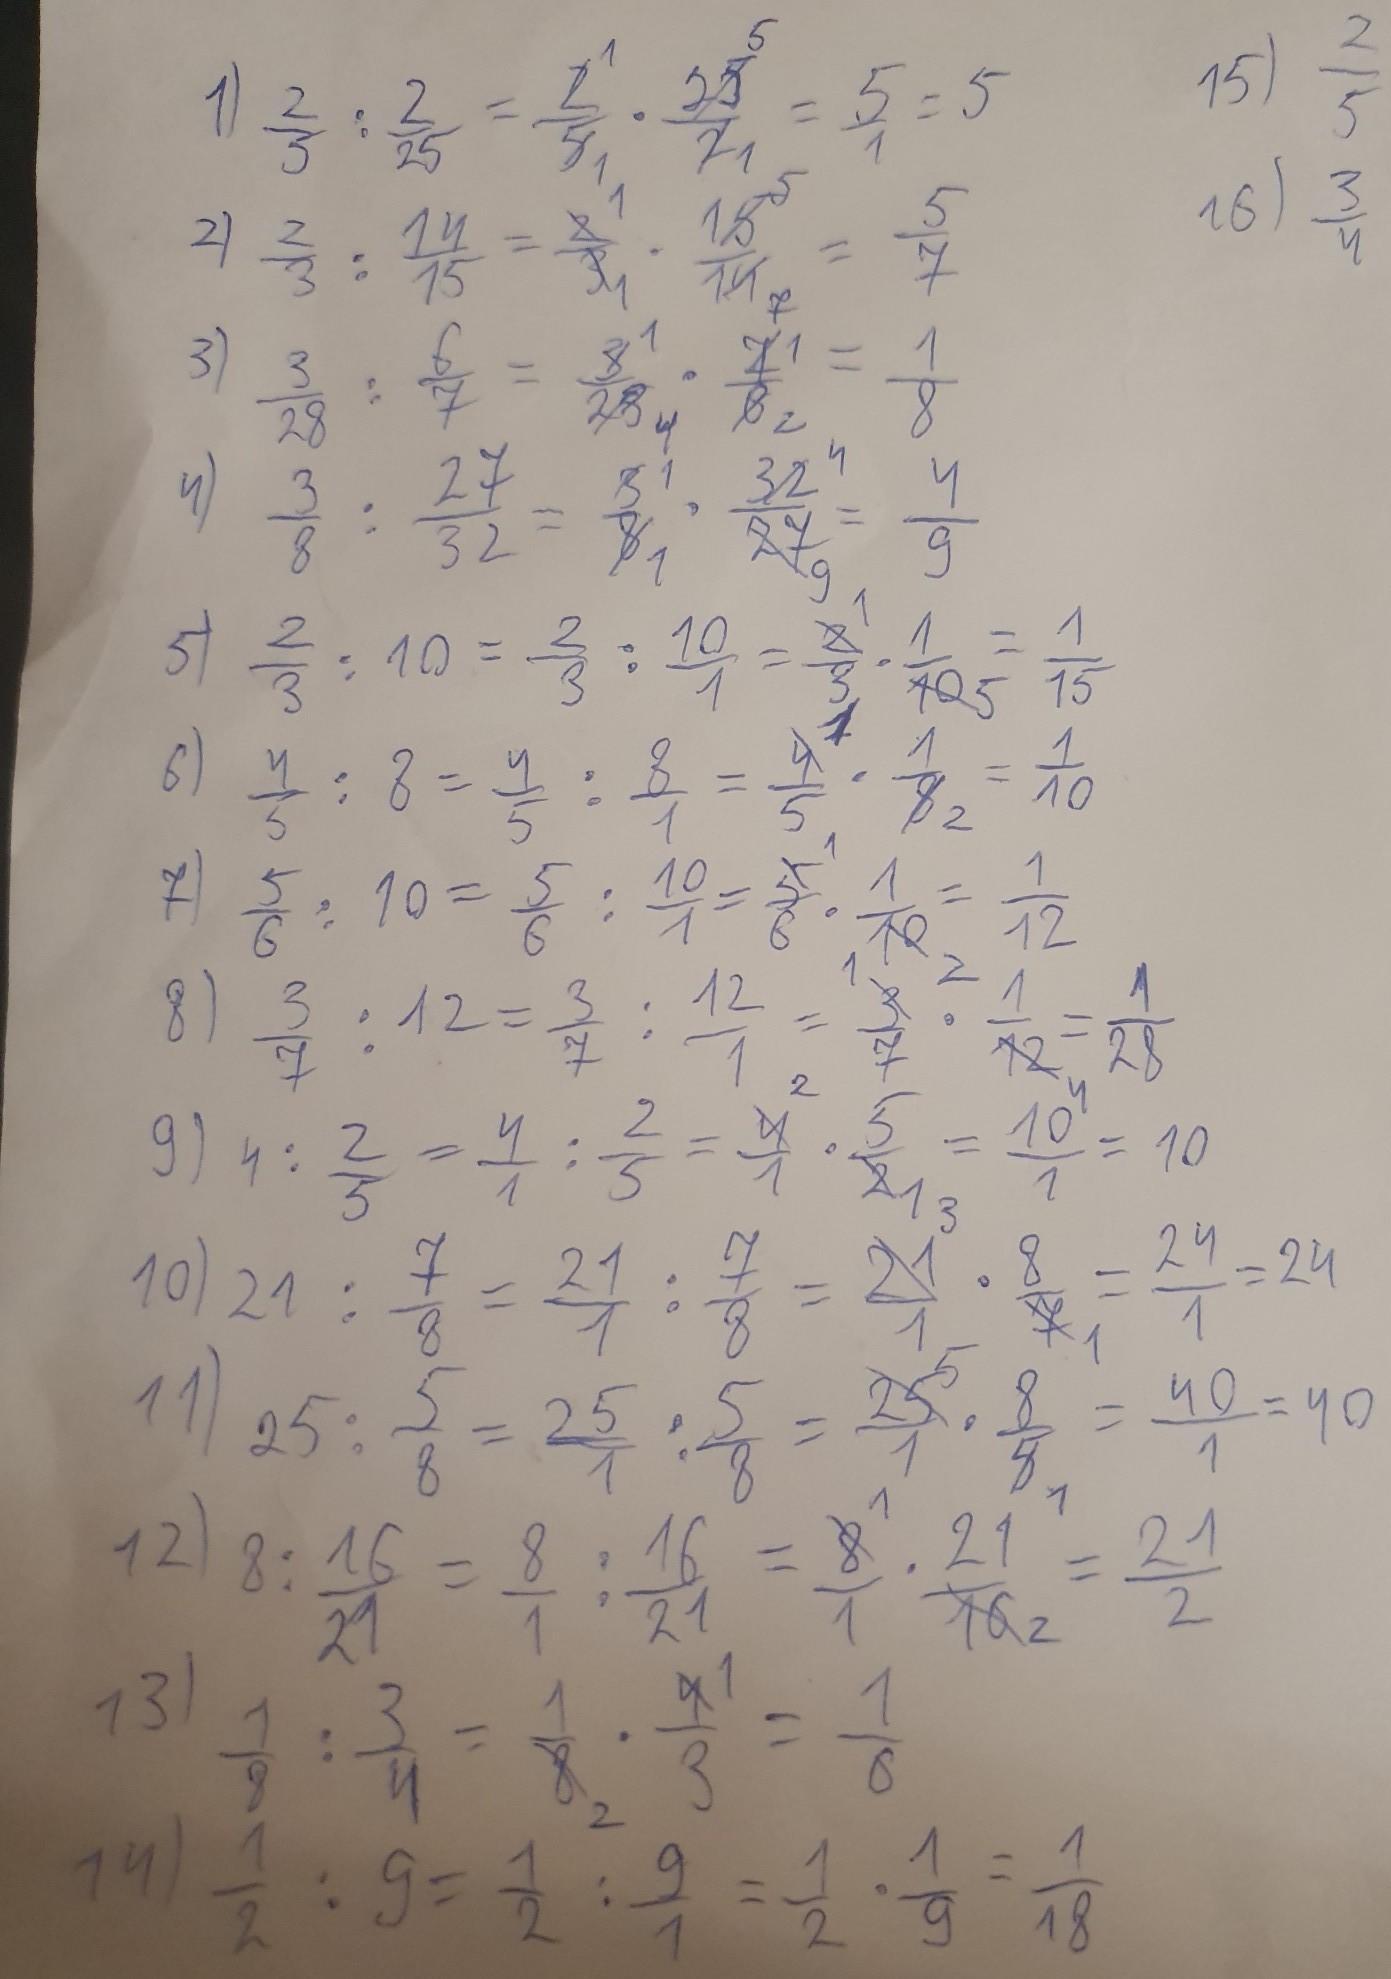 1) 2/5 : 2/25 = 2¹/5₁ · 25⁵/2₁ = 5/1 = 5
2) 2/3 : 14/15 = 2¹/3₁ · 15⁵/14₇ = 5/7
3) 3/28 : 6/7 = 3¹/28₄ · 7¹/6₂ = 1/8
4) 3/8 : 27/32 = 3¹/8₁ · 32⁴/27₉ = 4/9
5) 2/3 : 10 = 2/3 : 10/1 = 2¹/3 · 1/10₅ = 1/15
6) 4/5 : 8 = 4/5 : 8/1 = 4¹/5 · 1/8₂ = 1/10
7) 5/6 : 10 = 5/6 : 10/1 = 5¹/6 · 1/10₂ = 1/12
8) 3/7 : 12 = 3/7 : 12/1 = ¹3/7 · 1/12₄ = 1/28
9) 4 : 2/5 = 4/1 : 2/5 = 4²/1 · 5/2₁ = 10/1 = 10
10) 21 : 7/8 = 21/1 : 7/8 = 21³/1 · 8/7₁ = 24/1 = 24
11) 25 : 5/8 = 25/1 : 5/8 = 25⁵/1 · 8/5₁ = 40/1 = 40
12) 8 : 16/21 = 8/1 : 16/21 = 8¹/1 · 21/16₂ = 21/2
13) 1/8 : 3/4 = 1/8₂ · 4¹/3 = 1/6
14) 1/2 : 9 = 1/2 : 9/1 = 1/2 · 1/9 = 1/18
15) 2/5
16) 3/4